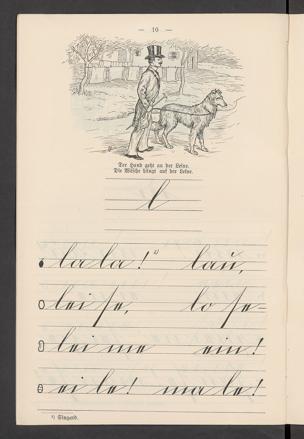 — 10 —
Der Hund geht an der Leine.
Die Wäsche hängt auf der Leine.
l
la la! ¹) lau,
lei se, lo se-
lei me ein!
ei le! ma le!
¹) Singend.